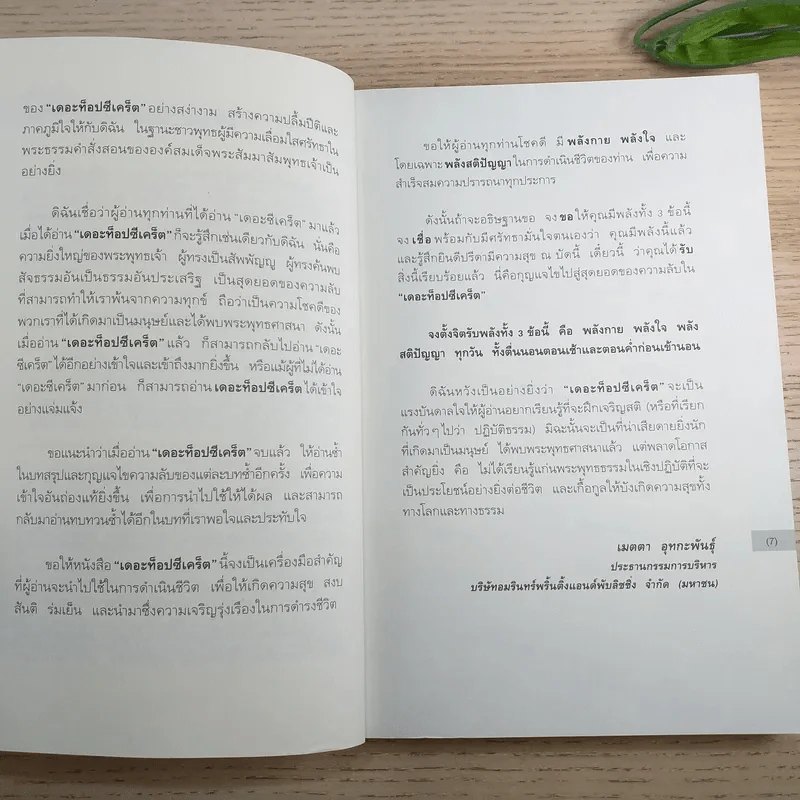 ของ “เดอะท็อปซีเคร็ต” อย่างสง่างาม สร้างความปลื้มปีติและ
ภาคภูมิใจให้กับดิฉัน ในฐานะชาวพุทธผู้มีความเลื่อมใสศรัทธาใน
พระธรรมคำสั่งสอนขององค์สมเด็จพระสัมมาสัมพุทธเจ้าเป็น
อย่างยิ่ง
ดิฉันเชื่อว่าผู้อ่านทุกท่านที่ได้อ่าน “เดอะซีเคร็ต” มาแล้ว
เมื่อได้อ่าน “เดอะท็อปซีเคร็ต” ก็จะรู้สึกเช่นเดียวกับดิฉัน นั่นคือ
ความยิ่งใหญ่ของพระพุทธเจ้า ผู้ทรงเป็นสัพพัญญู ผู้ทรงค้นพบ
สัจธรรมอันเป็นธรรมอันประเสริฐ เป็นสุดยอดของความลับ
ที่สามารถทำให้เราพ้นจากความทุกข์ ถือว่าเป็นความโชคดีของ
พวกเราที่ได้เกิดมาเป็นมนุษย์และได้พบพระพุทธศาสนา ดังนั้น
เมื่ออ่าน “เดอะท็อปซีเคร็ต” แล้ว ก็สามารถกลับไปอ่าน “เดอะ
ซีเคร็ต” ได้อีกอย่างเข้าใจและเข้าถึงมากยิ่งขึ้น หรือแม้ผู้ที่ไม่ได้อ่าน
“เดอะซีเคร็ต” มาก่อน ก็สามารถอ่าน เดอะท็อปซีเคร็ต ได้เข้าใจ
อย่างแจ่มแจ้ง
ขอแนะนำว่าเมื่ออ่าน “เดอะท็อปซีเคร็ต” จบแล้ว ให้อ่านซ้ำ
ในบทสรุปและกุญแจไขความลับของแต่ละบทซ้ำอีกครั้ง เพื่อความ
เข้าใจอันถ่องแท้ยิ่งขึ้น เพื่อการนำไปใช้ให้ได้ผล และสามารถ
กลับมาอ่านทบทวนซ้ำได้อีกในบทที่เราพอใจและประทับใจ
ขอให้หนังสือ “เดอะท็อปซีเคร็ต” นี้จงเป็นเครื่องมือสำคัญ
ที่ผู้อ่านจะนำไปใช้ในการดำเนินชีวิต เพื่อให้เกิดความสุข สงบ
สันติ ร่มเย็น และนำมาซึ่งความเจริญรุ่งเรืองในการดำรงชีวิต
ขอให้ผู้อ่านทุกท่านโชคดี มี พลังกาย พลังใจ และ
โดยเฉพาะ พลังสติปัญญา ในการดำเนินชีวิตของท่าน เพื่อความ
สำเร็จสมความปรารถนาทุกประการ
ดังนั้นถ้าจะอธิษฐานขอ จง ขอ ให้คุณมีพลังทั้ง 3 ข้อนี้
จง เชื่อ พร้อมกับมีศรัทธามั่นใจตนเองว่า คุณมีพลังนี้แล้ว
และรู้สึกยินดีปรีดามีความสุข ณ บัดนี้ เดี๋ยวนี้ ว่าคุณได้ รับ
สิ่งนี้เรียบร้อยแล้ว นี่คือกุญแจไขไปสู่สุดยอดของความลับใน
“เดอะท็อปซีเคร็ต”
จงตั้งจิตรับพลังทั้ง 3 ข้อนี้ คือ พลังกาย พลังใจ พลัง
สติปัญญา ทุกวัน ทั้งตื่นนอนตอนเช้าและตอนค่ำก่อนเข้านอน
ดิฉันหวังเป็นอย่างยิ่งว่า “เดอะท็อปซีเคร็ต” จะเป็น
แรงบันดาลใจให้ผู้อ่านอยากเรียนรู้ที่จะฝึกเจริญสติ (หรือที่เรียก
กันทั่วๆ ไปว่า ปฏิบัติธรรม) มิฉะนั้นจะเป็นที่น่าเสียดายยิ่งนัก
ที่เกิดมาเป็นมนุษย์ ได้พบพระพุทธศาสนาแล้ว แต่พลาดโอกาส
สำคัญยิ่ง คือ ไม่ได้เรียนรู้แก่นพระพุทธธรรมในเชิงปฏิบัติที่จะ
เป็นประโยชน์อย่างยิ่งต่อชีวิต และเกื้อกูลให้บังเกิดความสุขทั้ง
ทางโลกและทางธรรม
เมตตา อุทกะพันธุ์
ประธานกรรมการบริหาร
บริษัทอมรินทร์พริ้นติ้งแอนด์พับลิชชิ่ง จำกัด (มหาชน)
(7)